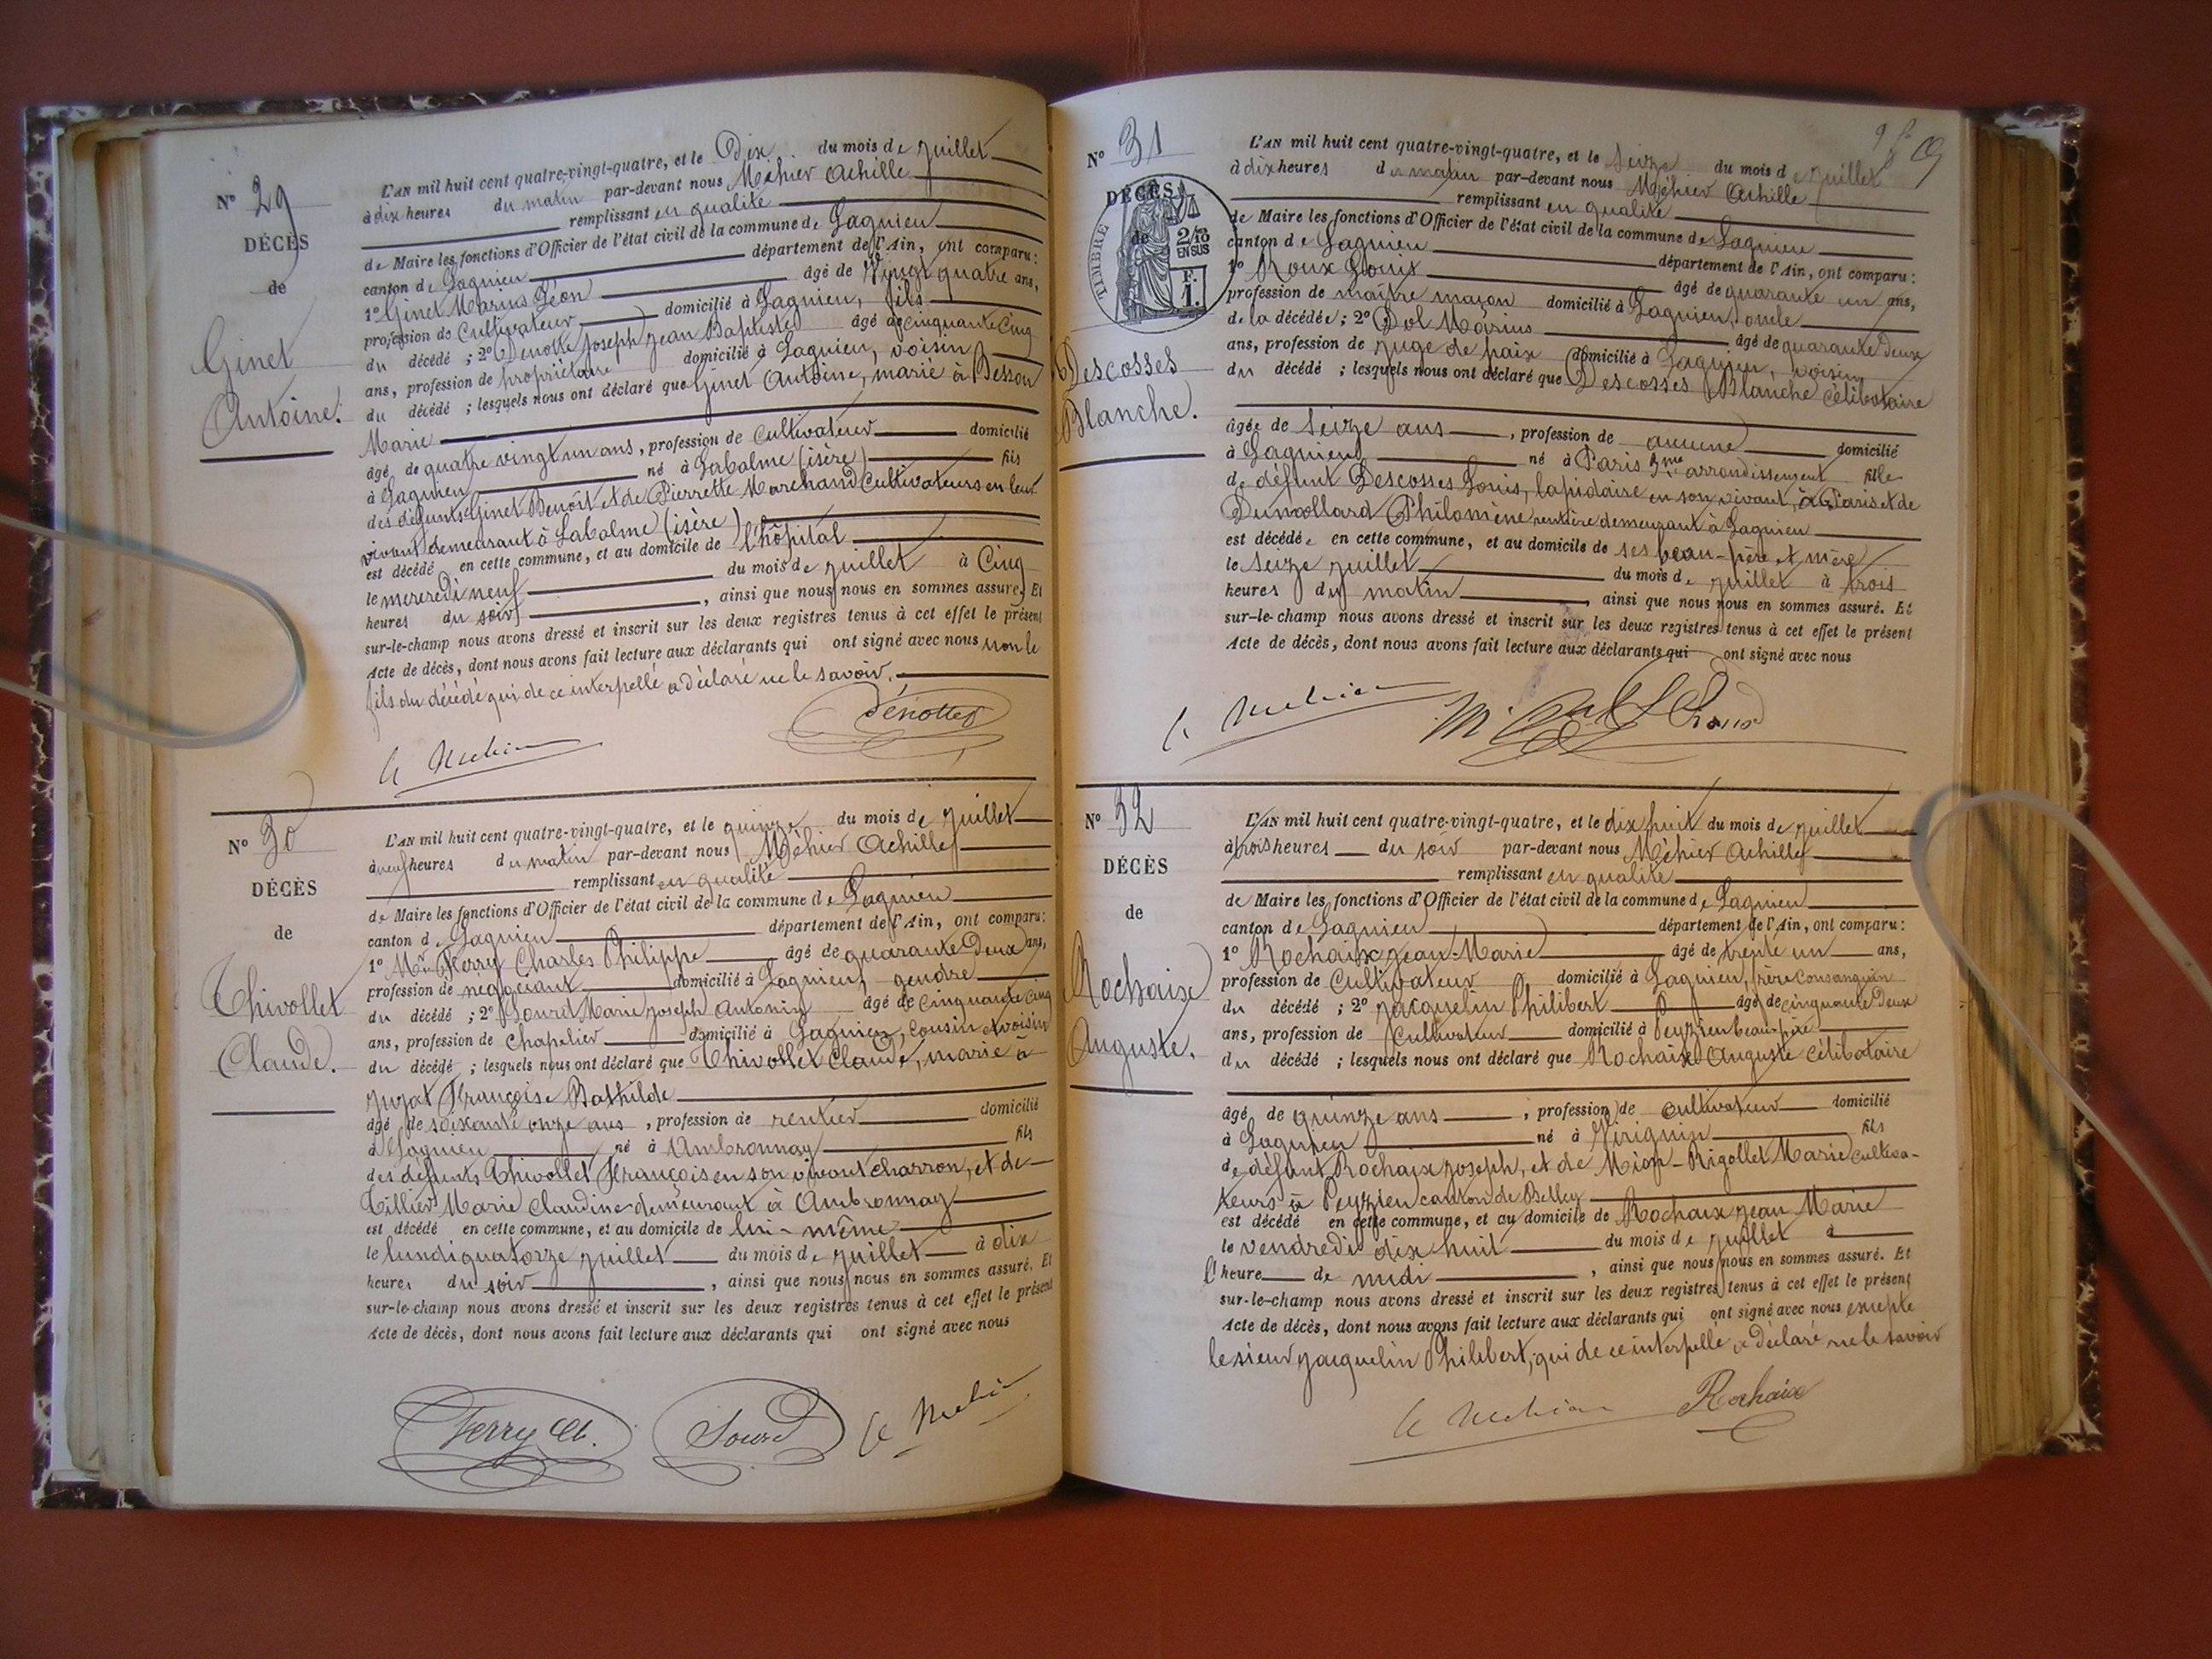 N° 29
DÉCÈS
de
Ginet
Antoine.
L'AN mil huit cent quatre-vingt-quatre, et le Dix du mois de juillet
à dix heures du matin par-devant nous Méhier Achille
remplissant en qualité
de Maire les fonctions d'Officier de l'état civil de la commune de Lagnieu
canton de Lagnieu département de l'Ain, ont comparu :
1° Ginet Marius Léon âgé de vingt quatre ans,
profession de Cultivateur domicilié à Lagnieu, fils
du décédé ; 2° Denotte Joseph Jean Baptiste âgé de cinquante cinq
ans, profession de propriétaire domicilié à Lagnieu, voisin
du décédé ; lesquels nous ont déclaré que Ginet Antoine, marié à Besson
Marie
âgé de quatre vingt un ans, profession de Cultivateur domicilié
à Lagnieu né à Labalme (isère) fils
des défunts Ginet Benoît et de Pierrette Marchand Cultivateurs en leur
vivant demeurant à Labalme (isère)
est décédé en cette commune, et au domicile de l'hôpital
le mercredi neuf du mois de juillet à Cinq
heures du soir, ainsi que nous nous en sommes assuré. Et
sur-le-champ nous avons dressé et inscrit sur les deux registres tenus à cet effet le présent
Acte de décès, dont nous avons fait lecture aux déclarants qui ont signé avec nous non le
fils du décédé qui de ce interpellé a déclaré ne le savoir.
Denotte
N° 30
DÉCÈS
de
Thivollet
Claude.
L'AN mil huit cent quatre-vingt-quatre, et le quinze du mois de juillet
à neuf heures du matin par-devant nous Méhier Achille
remplissant en qualité
de Maire les fonctions d'Officier de l'état civil de la commune de Lagnieu
canton de Lagnieu département de l'Ain, ont comparu :
1° Mr Ferry Charles Philippe âgé de quarante Deux ans,
profession de négociant domicilié à Lagnieu, gendre
du décédé ; 2° Sourd Marie Joseph Antonin âgé de Cinquante cinq
ans, profession de Chapelier domicilié à Lagnieu, cousin et voisin
du décédé ; lesquels nous ont déclaré que Thivollet Claude, marié à
Jujat Françoise Bathilde
âgé de soixante onze ans, profession de rentier domicilié
à Lagnieu né à Ambronnay fils
des défunts Thivollet François en son vivant charron, et de
Tillier Marie Claudine demeurant à Ambronnay
est décédé en cette commune, et au domicile de lui-même
le lundi quatorze juillet du mois de juillet à dix
heures du soir, ainsi que nous nous en sommes assuré. Et
sur-le-champ nous avons dressé et inscrit sur les deux registres tenus à cet effet le présent
Acte de décès, dont nous avons fait lecture aux déclarants qui ont signé avec nous
Ferry Ch. Sourd
N° 31
DÉCÈS
de
TIMBRE
2/10
EN SUS
F.
1.
Descosses
Blanche.
L'AN mil huit cent quatre-vingt-quatre, et le seize du mois de juillet
à dix heures du matin par-devant nous Méhier Achille
remplissant en qualité
de Maire les fonctions d'Officier de l'état civil de la commune de Lagnieu
canton de Lagnieu département de l'Ain, ont comparu :
1° Roux Louis âgé de quarante un ans,
profession de maître maçon domicilié à Lagnieu, oncle
de la décédée ; 2° Dol Marius âgé de quarante Deux
ans, profession de juge de paix domicilié à Lagnieu, voisin
du décédé ; lesquels nous ont déclaré que Descosses Blanche célibataire
âgée de seize ans, profession de aucune domicilié
à Lagnieu né à Paris 3me arrondissement fille
de défunt Descosses Louis, lapidaire en son vivant, à Paris et de
Dumollard Philomène rentière demeurant à Lagnieu
est décédée en cette commune, et au domicile de ses beau-père et mère
le seize juillet du mois de juillet à trois
heures du matin, ainsi que nous nous en sommes assuré. Et
sur-le-champ nous avons dressé et inscrit sur les deux registres tenus à cet effet le présent
Acte de décès, dont nous avons fait lecture aux déclarants qui ont signé avec nous
N° 32
DÉCÈS
de
Rochaix
Auguste.
L'AN mil huit cent quatre-vingt-quatre, et le dix huit du mois de juillet
à trois heures du soir par-devant nous Méhier Achille
remplissant en qualité
de Maire les fonctions d'Officier de l'état civil de la commune de Lagnieu
canton de Lagnieu département de l'Ain, ont comparu :
1° Rochaix Jean-Marie âgé de trente un ans,
profession de Cultivateur domicilié à Lagnieu, frère consanguin
du décédé ; 2° Jacquelin Philibert âgé de cinquante Deux
ans, profession de Cultivateur domicilié à Peyzieu beau-père
du décédé ; lesquels nous ont déclaré que Rochaix Auguste célibataire
âgé de quinze ans, profession de cultivateur domicilié
à Lagnieu né à Virignin fils
de défunt Rochaix Joseph, et de Mion-Rigollet Marie cultiva-
teurs à Peyzieu canton de Belley
est décédé en cette commune, et au domicile de Rochaix Jean Marie
le vendredi dix huit du mois de juillet à
l'heure de midi, ainsi que nous nous en sommes assuré. Et
sur-le-champ nous avons dressé et inscrit sur les deux registres tenus à cet effet le présent
Acte de décès, dont nous avons fait lecture aux déclarants qui ont signé avec nous excepté
le sieur Jacquelin Philibert, qui de ce interpellé a déclaré ne le savoir
Rochaix